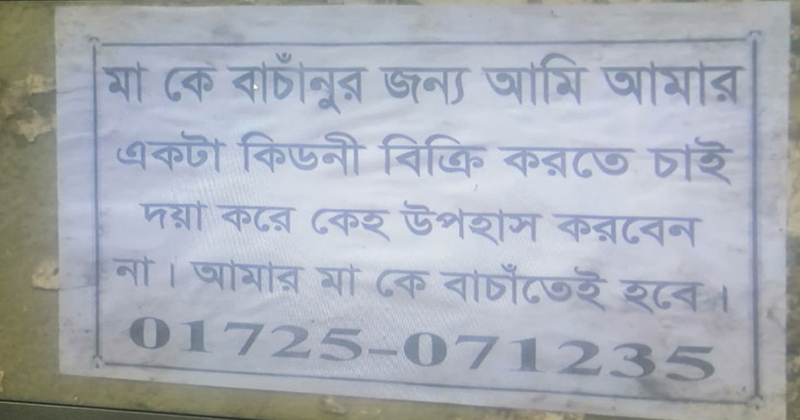 মা কে বাচাঁনুর জন্য আমি আমার
একটা কিডনী বিক্রি করতে চাই
দয়া করে কেহ উপহাস করবেন
না। আমার মা কে বাচাঁতেই হবে।
01725-071235